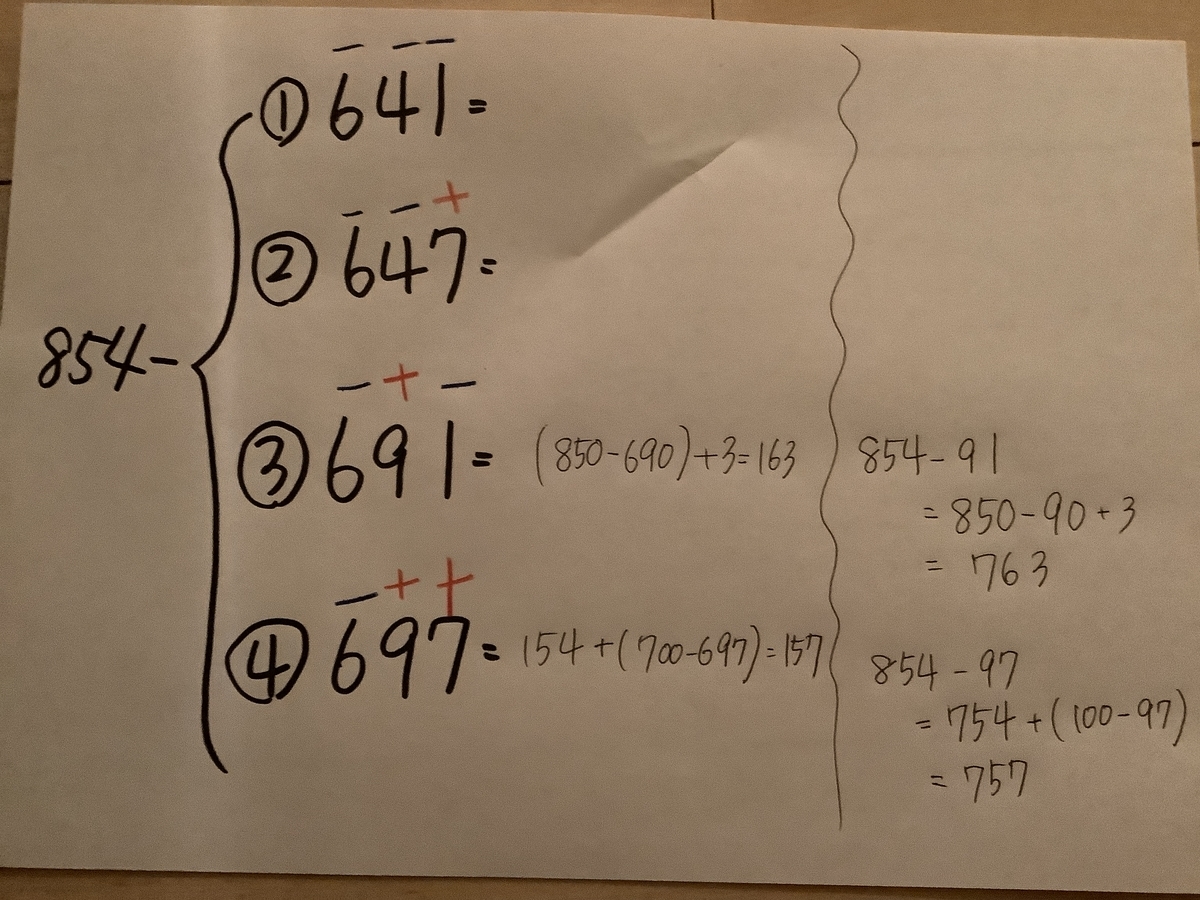 − − −
① 641 =
− − +
② 647 =
854 −
− + −
③ 691 = (850-690)+3=163
− + +
④ 697 = 154+(700-697)=157
854-91
= 850-90+3
= 763
854-97
= 754+(100-97)
= 757